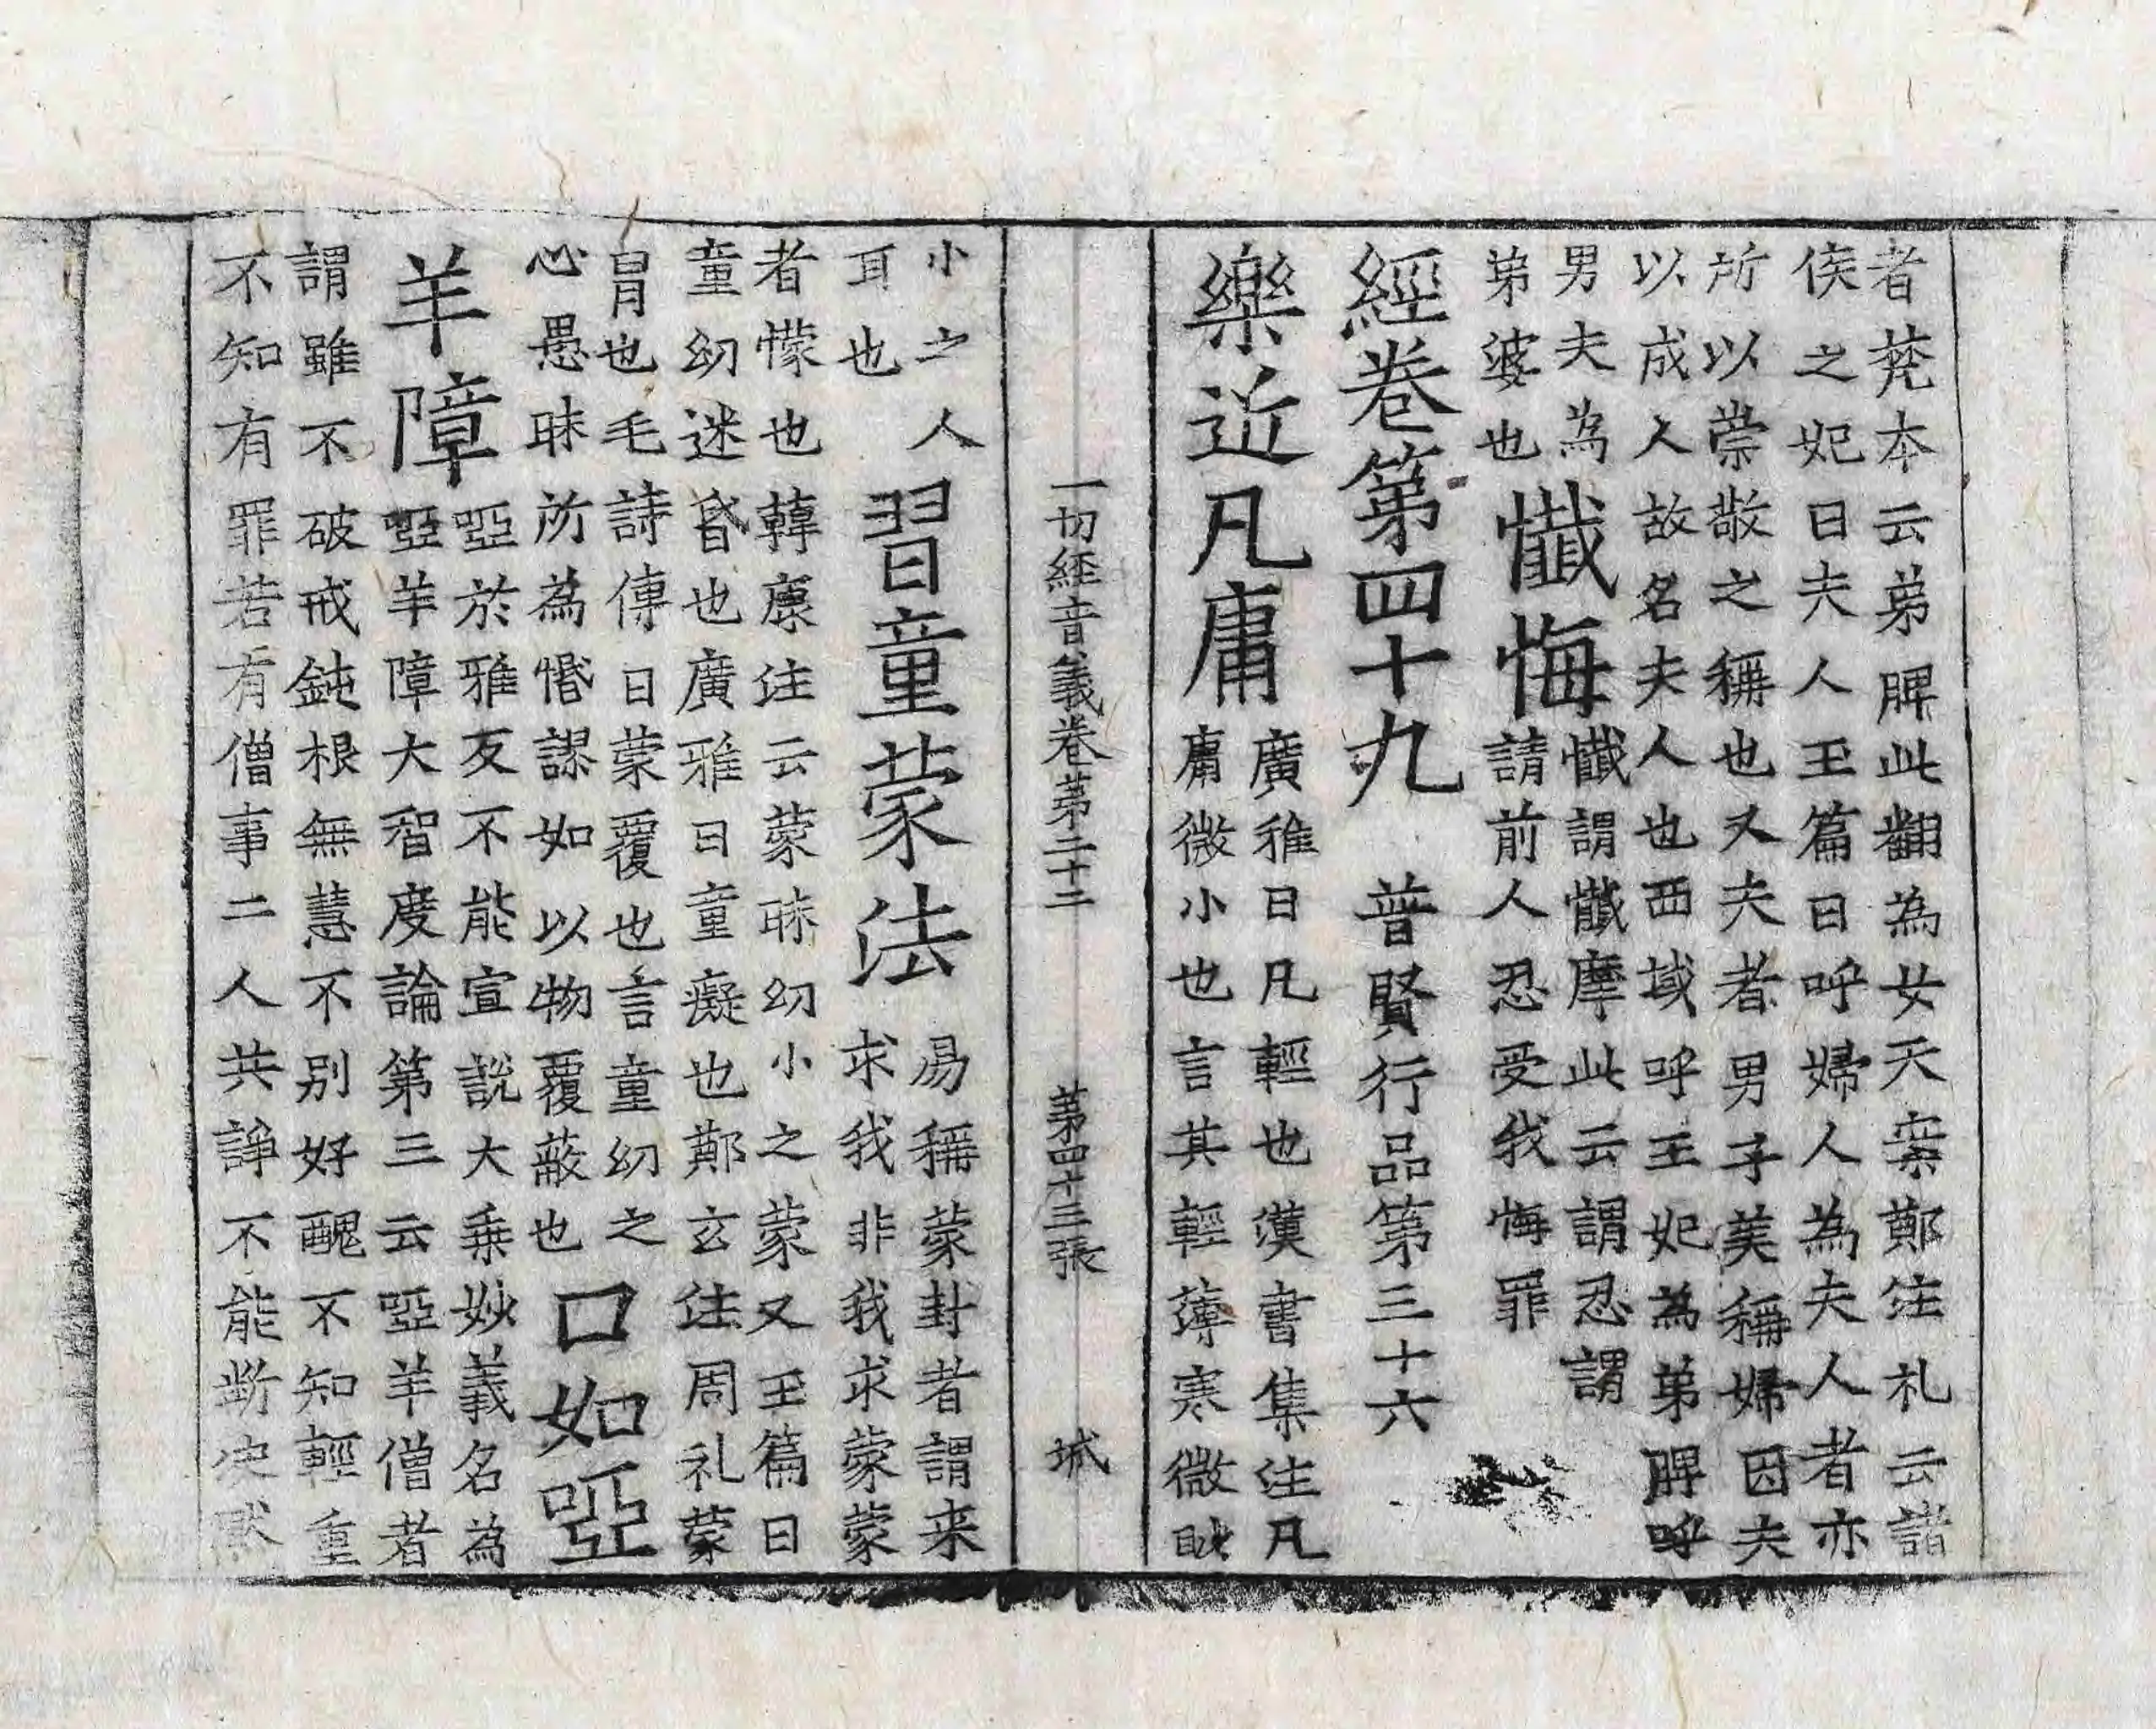 者梵本云弟脾此翻為女天案鄭注礼云諸
侯之妃曰夫人玉篇曰呼婦人為夫人者亦
所以崇敬之稱也又夫者男子美稱婦因夫
以成人故名夫人也西域呼王妃為弟脾呼
男夫為
弟婆也
懺悔
懺謂懺摩此云謂忍謂
請前人忍受我悔罪
經卷第四十九 普賢行品第三十六
樂近凡庸
廣雅曰凡輕也漢書集注凡
庸微小也言其輕薄寒微眇
一切経音義卷第二十二 第四十三張 城
小之人
耳也
習童蒙法
易稱蒙封者謂来
求我非我求蒙蒙
者懞也韓康注云蒙昧幼小之蒙又玉篇曰
童幼迷昏也廣雅曰童癡也鄭玄注周礼蒙
冐也毛詩傳曰蒙覆也言童幼之
心愚昧所為惛謬如以物覆蔽也
口如啞
羊障
啞於雅反不能宣説大乗妙義名為
啞羊障大智度論第三云啞羊僧者
謂雖不破戒鈍根無慧不別好醜不知輕重
不知有罪若有僧事二人共諍不能断決黙